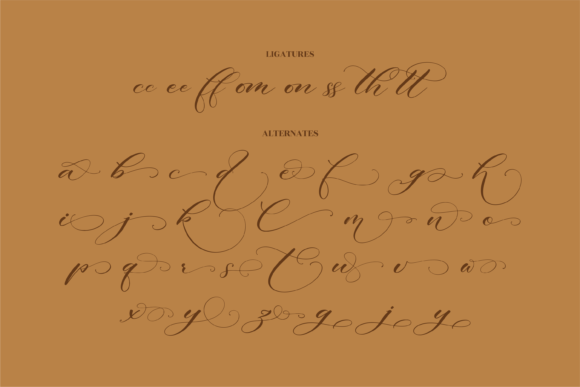 LIGATURES
cc ee ff om on ss th tt
ALTERNATES
a b c d e f g h
i j k l m n o
p q r s t u v w
x y z g j y